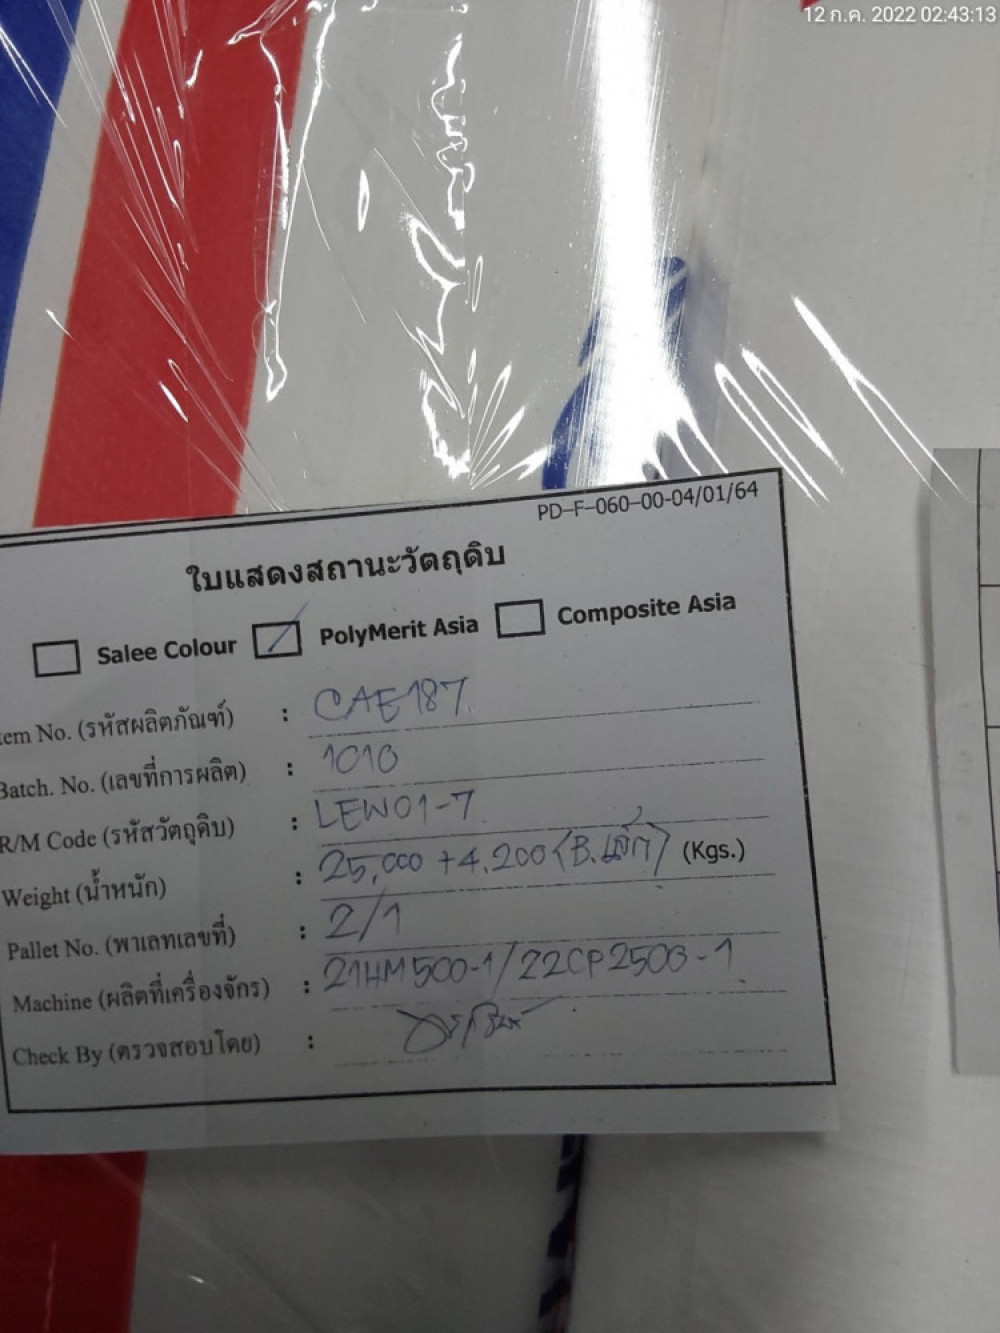 12 ก.ค. 2022 02:43:13
PD-F-060-00-04/01/64
ใบแสดงสถานะวัตถุดิบ
Salee Colour PolyMerit Asia Composite Asia
tem No. (รหัสผลิตภัณฑ์) : CAE187
Batch. No. (เลขที่การผลิต) : 1010
R/M Code (รหัสวัตถุดิบ) : LEW01-7
Weight (น้ำหนัก) : 25,000 + 4.200 (B.เล็ก) (Kgs.)
Pallet No. (พาเลทเลขที่) : 2/1
Machine (ผลิตที่เครื่องจักร) : 21HM500-1/22CP250G-1
Check By (ตรวจสอบโดย) :